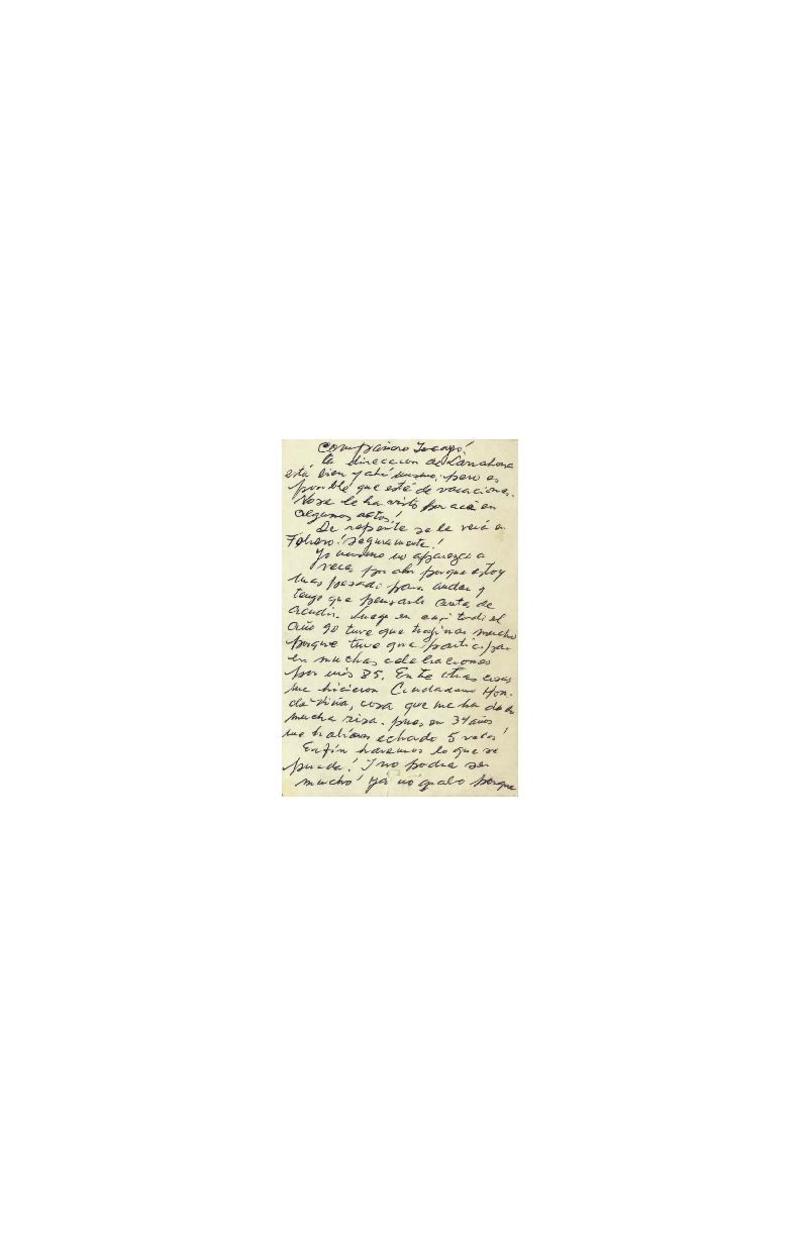 Compañero
la dirección de Larrahona
está bien y ahí mismo, pero es
posible que esté de vacaciones.
No se le ha visto por acá en
algunos actos!
De repente se le verá en
Febrero! seguramente!
Yo mismo no aparezco a
veces por ahí porque estoy
mas pesado para andar y
tengo que pensarlo antes de
acudir. Luego en casi todo el
año 90 tuve que trajinar mucho
porque tuve que participar
en muchas celebraciones
por mis 85. Entre otras cosas
me hicieron Ciudadano Hon.
de Viña, cosa que me ha dado
mucha risa. pues en 34 años
me habían echado 5 veces!
En fin haremos lo que se
pueda! Y no podrá ser
mucho! ya no porque